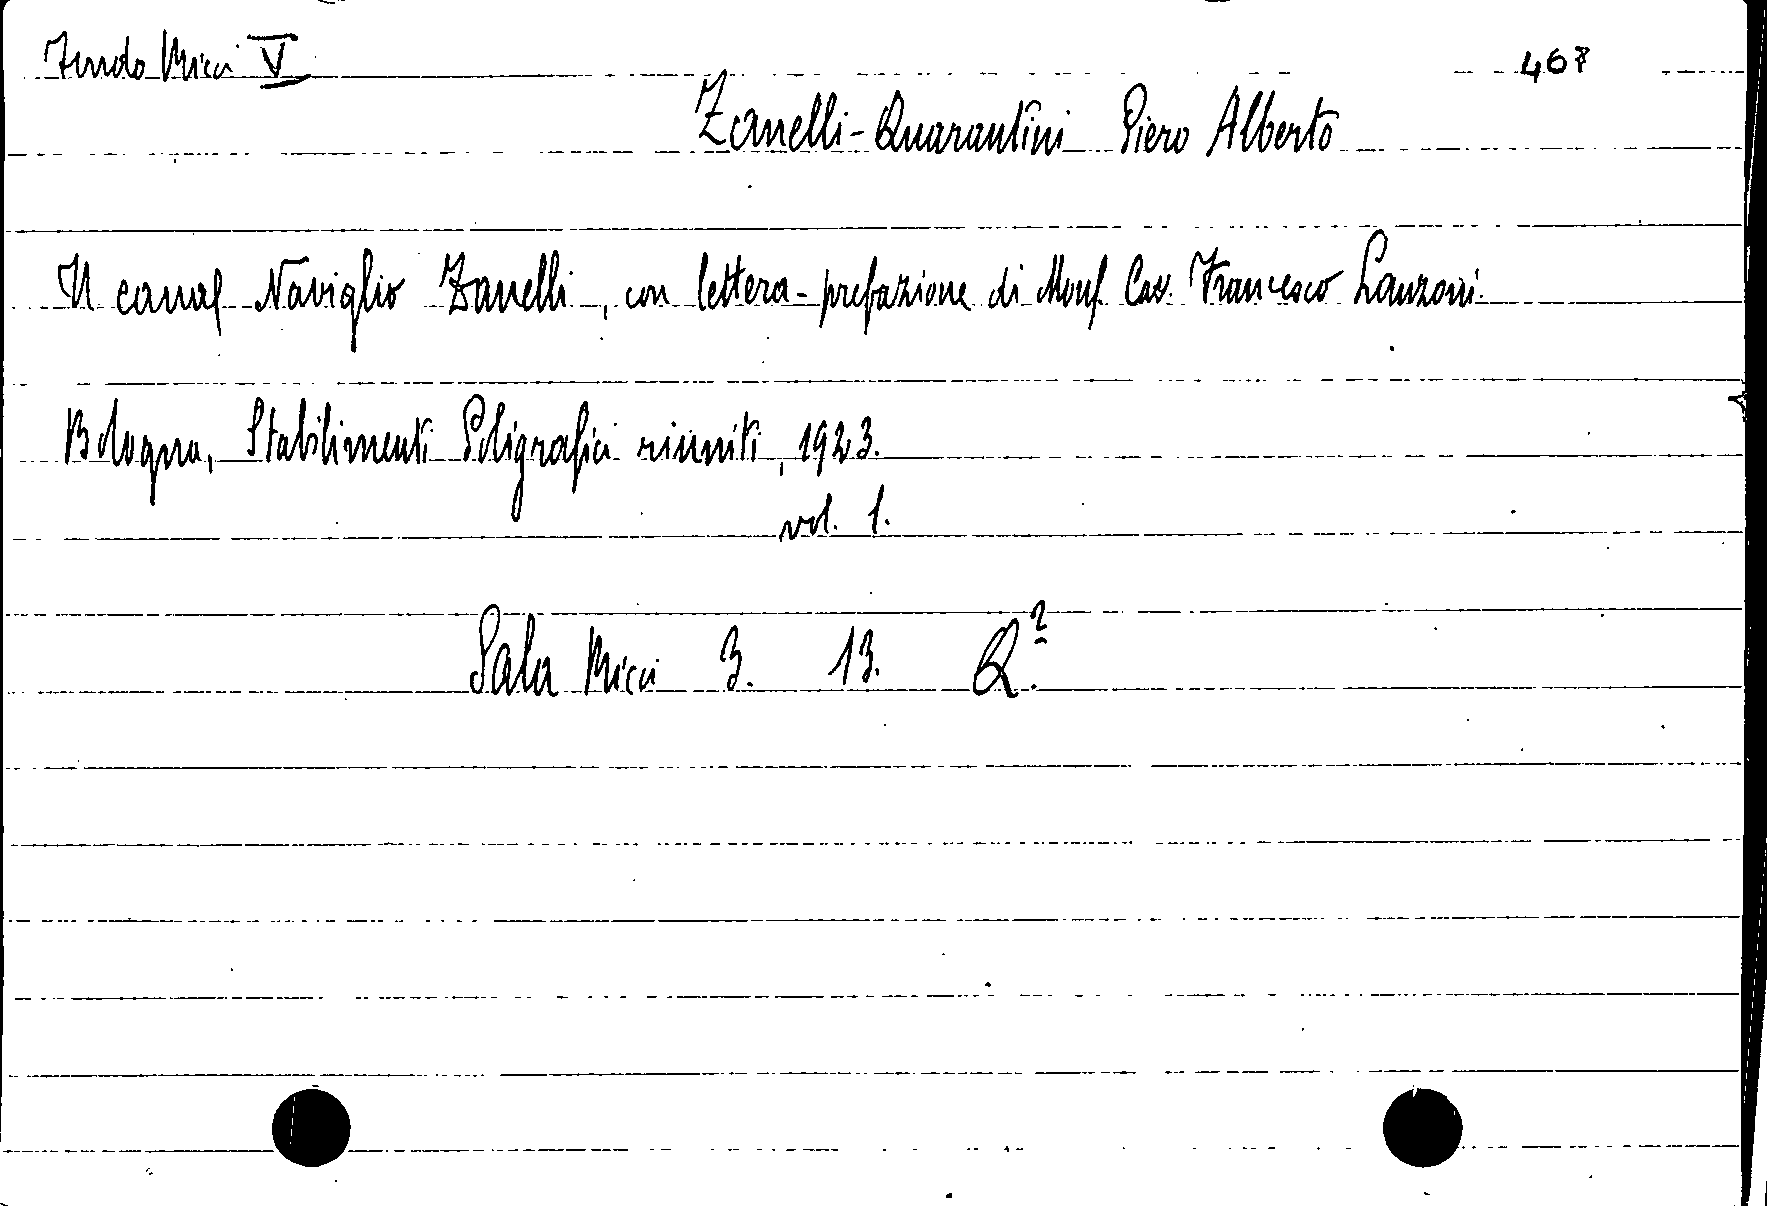 Fondo Micci V 467
Zanelli-Quarantini Piero Alberto
Il canal Naviglio Zanelli, con lettera-prefazione di Mons. Cav. Francesco Lanzoni.
Bologna, Stabilimenti Poligrafici riuniti, 1923.
vol. 1.
Sala Micci 3. 13. Q.2